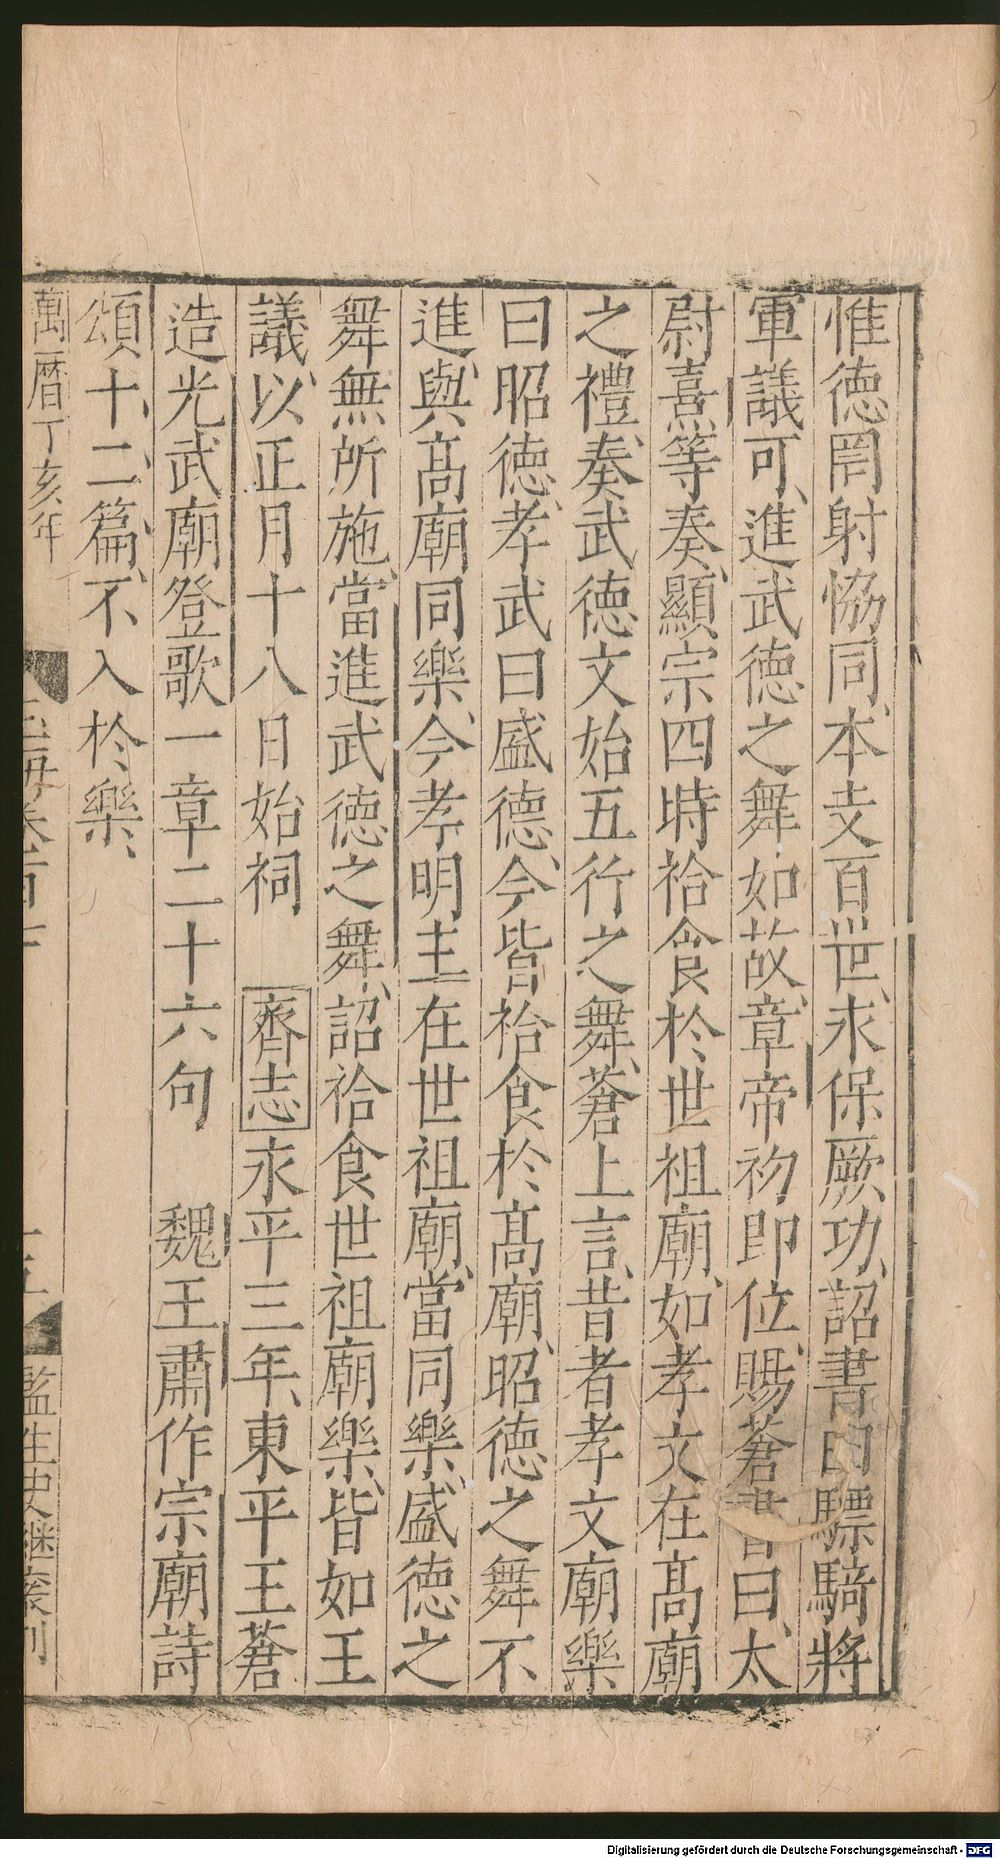 惟德罔射協同、本支百世、永保厥功、詔書曰驃騎將
軍議可、進武德之舞如故、章帝初即位、賜蒼書曰、太
尉熹等奏、顯宗四時祫食於世祖廟、如孝文在髙廟
之禮、奏武德文始五行之舞、蒼上言、昔者孝文廟樂
曰昭德、孝武曰盛德、今皆祫食於髙廟、昭德之舞不
進、與髙廟同樂、今孝明主在世祖廟、當同樂、盛德之
舞無所施、當進武德之舞、詔祫食世祖廟樂、皆如王
議、以正月十八日始祠 齊志永平三年、東平王蒼
造光武廟登歌一章二十六句 魏王肅作宗廟詩
頌十二篇、不入於樂、
萬曆丁亥年 玉海卷百 監生史繼宸刊
Digitalisierung gefördert durch die Deutsche Forschungsgemeinschaft - DFG